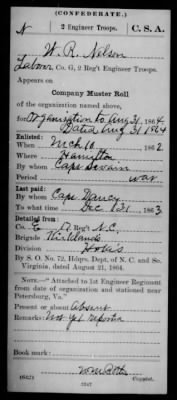 (CONFEDERATE.)
N 2 Engineer Troops. C. S. A.
W. R. Nelson
Labour Co. G, 2 Reg't Engineer Troops.
Appears on
Company Muster Roll
of the organization named above,
for Organization to Aug 31, 1864
Dated Aug 31 1864
Enlisted:
When Mch 10 1862
Where Hamilton
By whom Capt
Period war
Last paid:
By whom Capt
To what time Dec 31, 1863
Detailed from:
Co. 17 Reg't N.C.
Brigade Kirkland
Division Hokes
By S. O. No. 72, Hdqrs. Dept. of N. C. and So.
Virginia, dated August 21, 1864.
NOTE.—"Attached to 1st Engineer Regiment
from date of organization and stationed near
Petersburg, Va."
Present or absent Absent
Remarks: Not yet reported
Book mark:
(642)
Copyist.